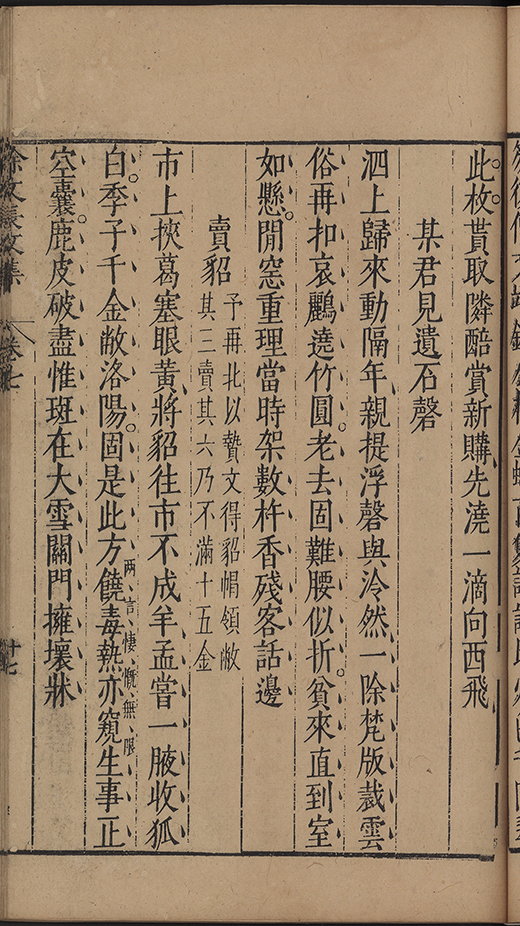 此枚貰取隣醅賞新購先澆一滴向西飛
某君見遺石磬
泗上歸來動隔年親提浮磬與泠然一除梵版裁雲
俗再扣哀鸝遶竹圓老去固難腰似折貧來直到室
如懸閒窑重理當時架數杵香殘客話邊
賣貂
予再北以贄文得貂帽領敝
其三賣其六乃不滿十五金
市上挾葛塞眼黃將貂往市不成羊孟嘗一腋收狐
白季子千金敝洛陽固是此方饒毒熱亦窺生事正
兩言悽慨無限
空囊鹿皮破盡惟斑在大雪關門擁壞牀
徐文長文集
卷七
十七